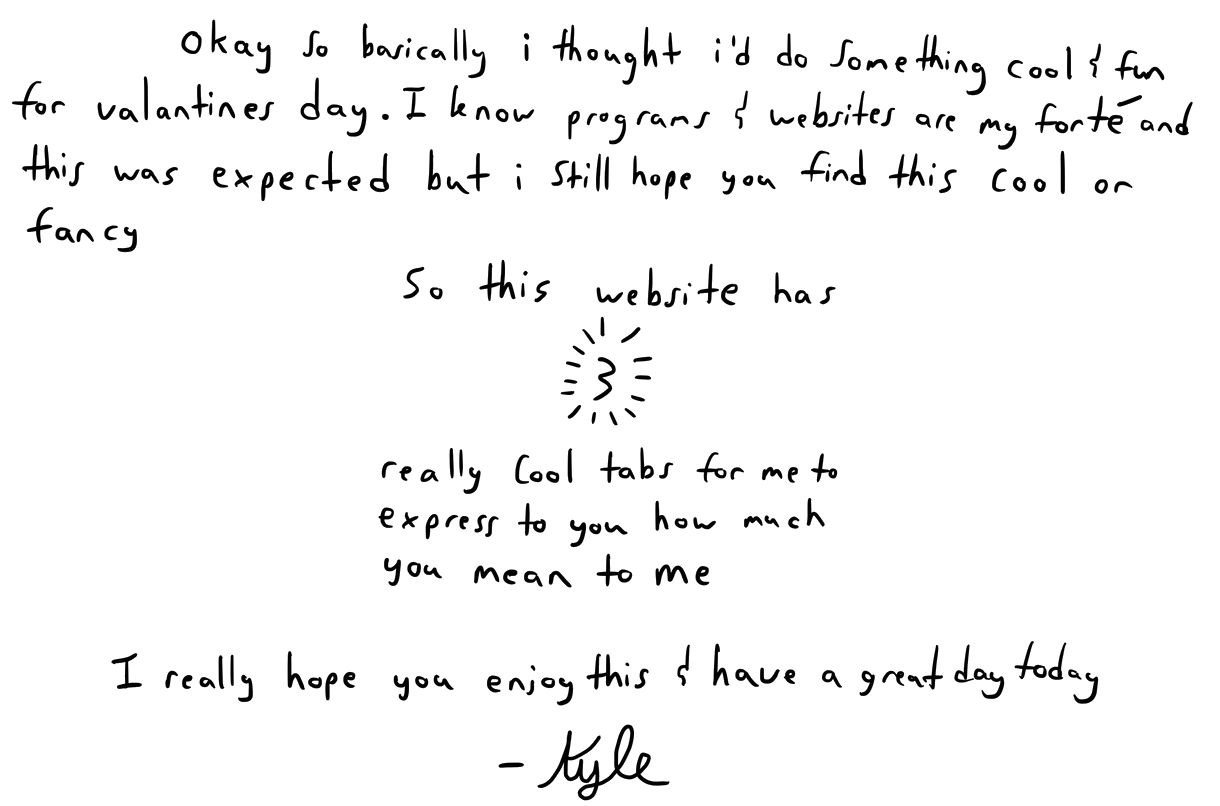 okay so basically i thought i'd do something cool & fun
for valantines day. I know programs & websites are my forté and
this was expected but i still hope you find this cool or
fancy
So this website has
3
really cool tabs for me to
express to you how much
you mean to me
I really hope you enjoy this & have a great day today
- Kyle